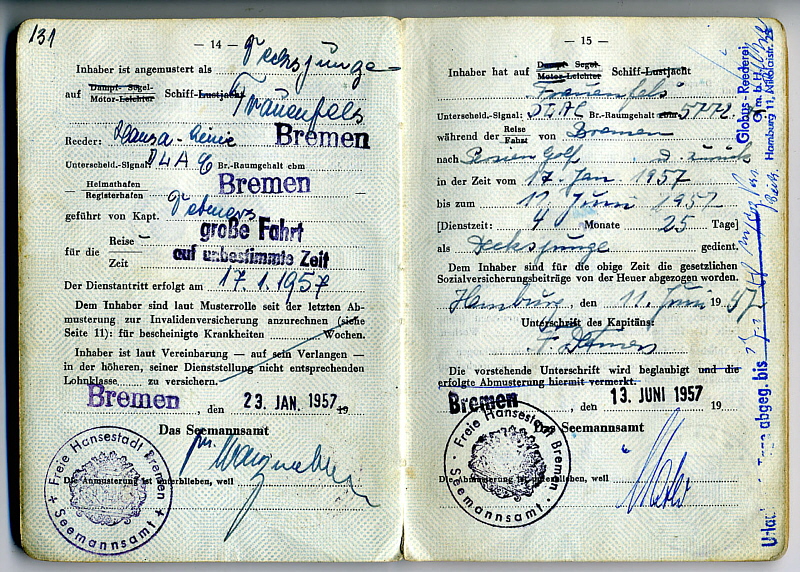 131
— 14 —
Inhaber ist angemustert als Decksjunge
auf Dampf- Segel- Motor-Leichter Schiff-Lustjacht
Frauenfels
Reeder: Hansa-Linie Bremen
Unterscheid.-Signal: DLAC Br.-Raumgehalt cbm
Heimathafen
Registerhafen
Bremen
geführt von Kapt.
große Fahrt
auf unbestimmte Zeit
für die
Reise
Zeit
Der Dienstantritt erfolgt am 17.1.1957
Dem Inhaber sind laut Musterrolle seit der letzten Ab-
musterung zur Invalidenversicherung anzurechnen (siehe
Seite 11): für bescheinigte Krankheiten Wochen.
Inhaber ist laut Vereinbarung — auf sein Verlangen —
in der höheren, seiner Dienststellung nicht entsprechenden
Lohnklasse zu versichern.
Bremen, den 23. JAN. 1957 19
Das Seemannsamt
Die Anmusterung ist unterblieben, weil
Freie Hansestadt Bremen
Seemannsamt
— 15 —
Inhaber hat auf Dampf- Segel- Motor-Leichter Schiff-Lustjacht
"Frauenfels"
Unterscheid.-Signal: DLAC Br.-Raumgehalt cbm 5772
während der Reise Fahrt von Bremen
nach Persien Golf u. zurück
in der Zeit vom 17. Jan 1957
bis zum 11. Juni 1957
[Dienstzeit: 4 Monate 25 Tage]
als Decksjunge gedient.
Dem Inhaber sind für die obige Zeit die gesetzlichen
Sozialversicherungsbeiträge von der Heuer abgezogen worden.
Hamburg, den 11. Juni 1957
Unterschrift des Kapitäns:
Die vorstehende Unterschrift wird beglaubigt und die
erfolgte Abmusterung hiermit vermerkt.
Bremen, den 13. JUNI 1957 19
Das Seemannsamt
Die Abmusterung ist unterblieben, weil
Freie Hansestadt Bremen
Seemannsamt
Globus-Reederei
G. m. b. H.
Hamburg 11, Nikolaistr.
abgeg. bis